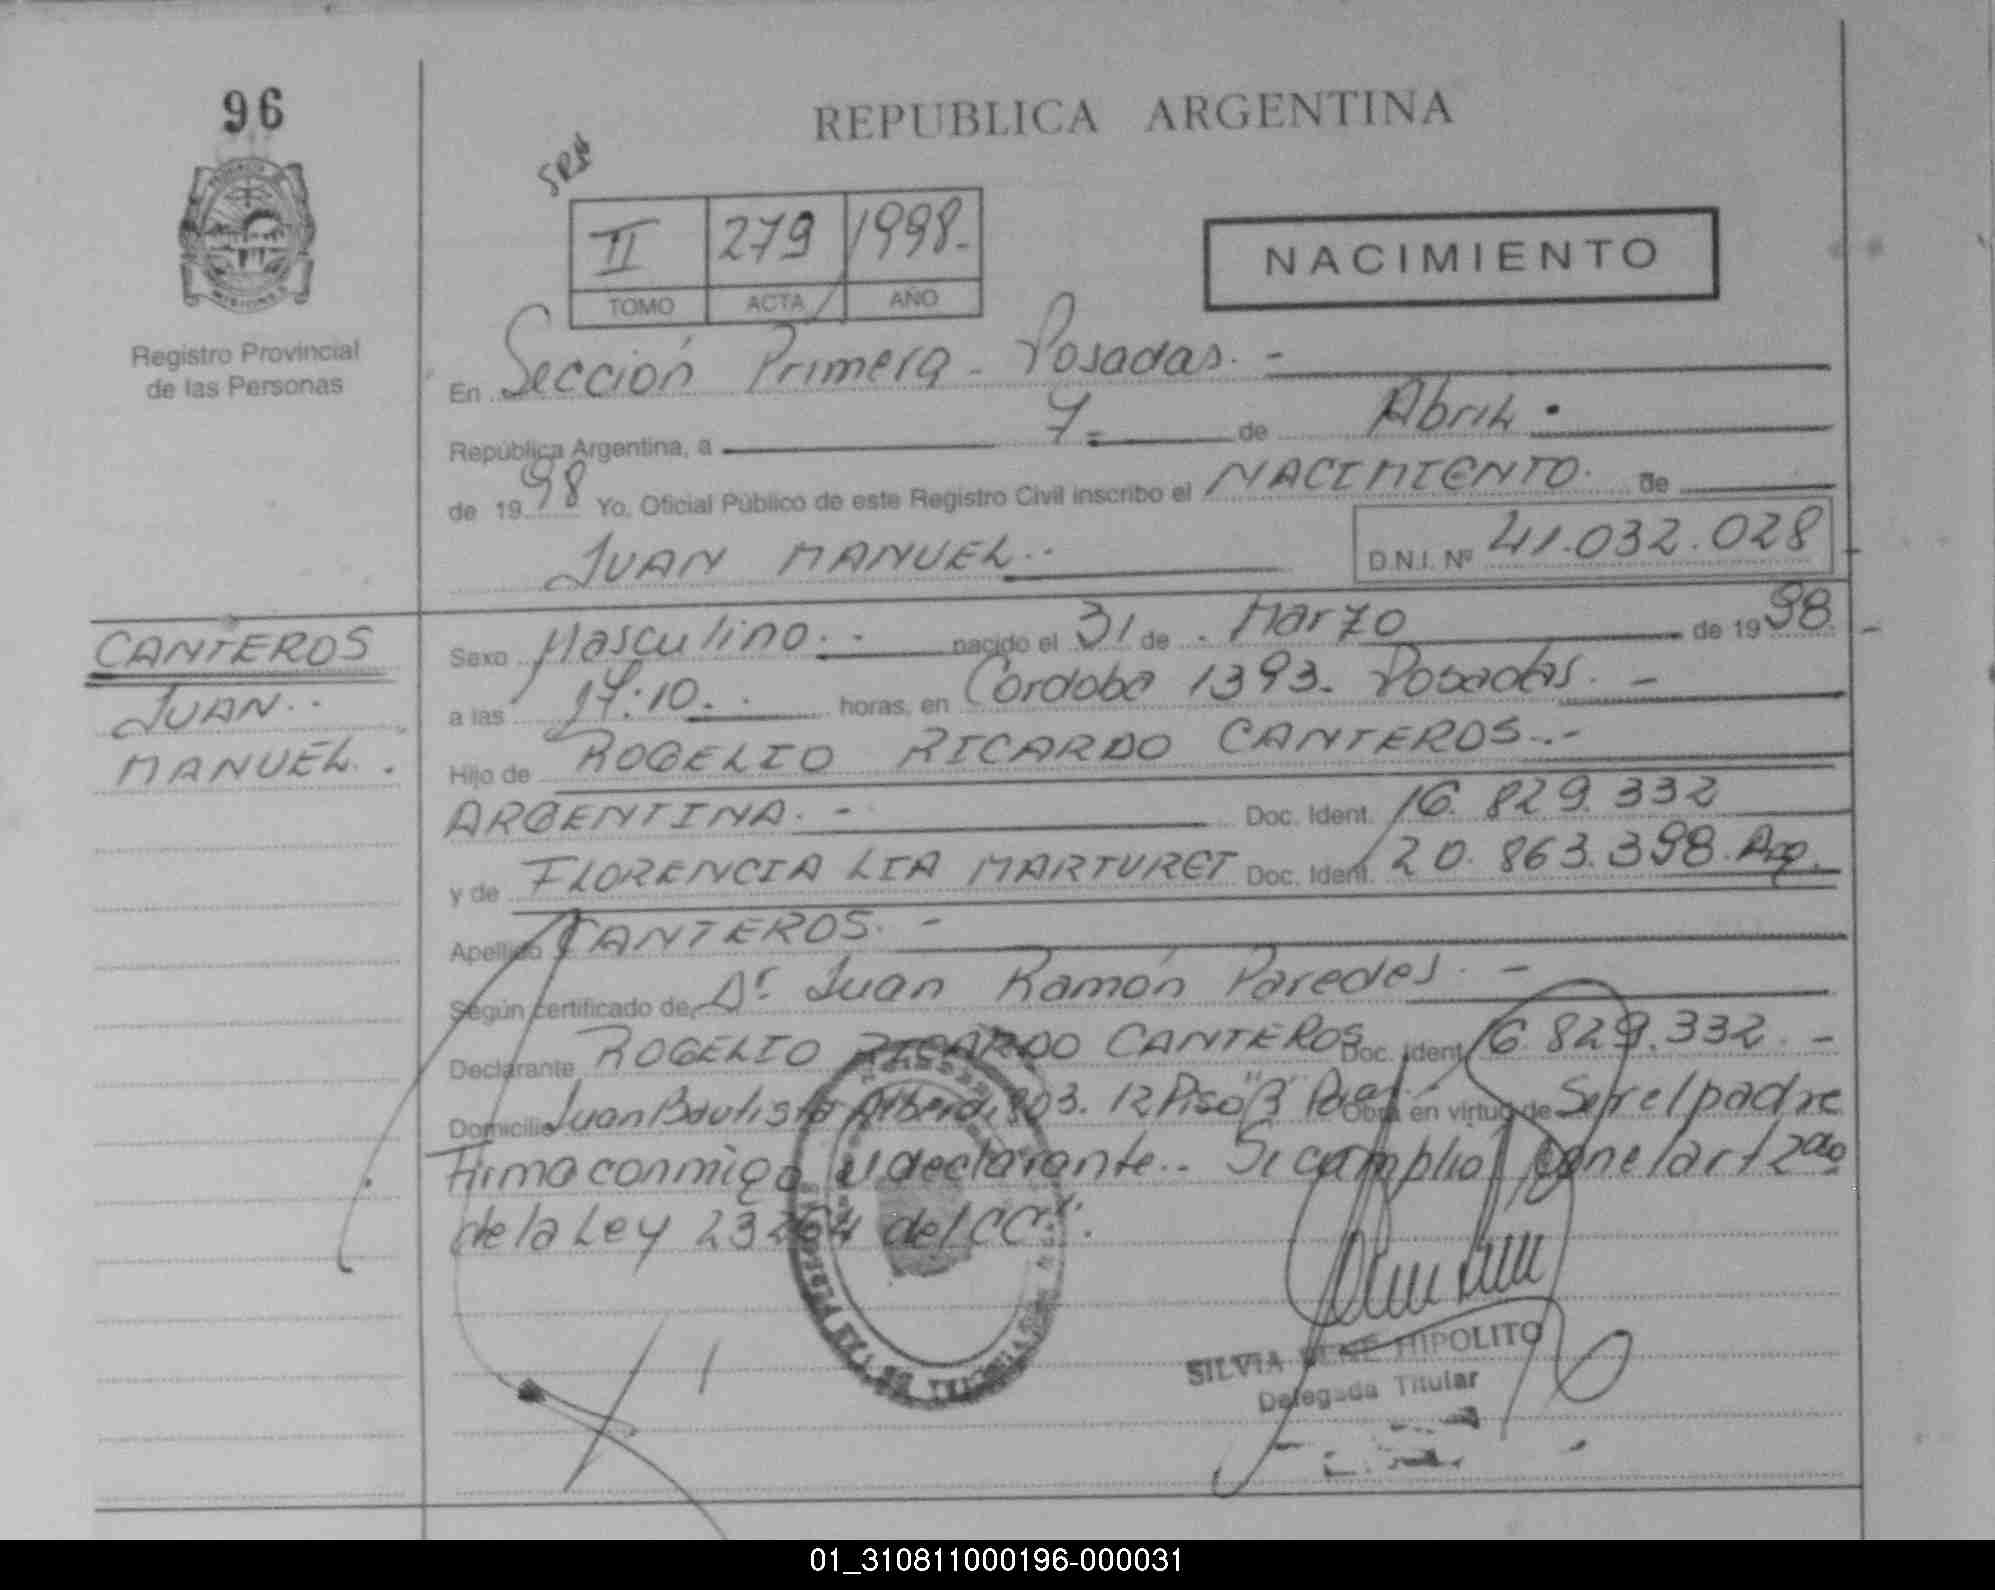 96
REPUBLICA ARGENTINA
II 279 1998.-
TOMO ACTA AÑO
NACIMIENTO
MISIONES
Registro Provincial
de las Personas
En Sección Primera - Posadas. -
República Argentina, a 7.- de Abril.
de 1998 Yo, Oficial Público de este Registro Civil inscribo el NACIMIENTO. de
JUAN MANUEL..
D.N.I. Nº 41.032.028
CANTEROS
JUAN..
MANUEL..
Sexo Masculino.. nacido el 31 de Marzo de 1998.
a las 17:10.. horas, en Córdoba 1393. Posadas. -
Hijo de ROGELIO RICARDO CANTEROS..-
ARGENTINA. - Doc. Ident. 16.829.332
y de FLORENCIA LIA MARTURET Doc. Ident. 20.863.398. Arg.
Apellido CANTEROS. -
Según certificado de Dr Juan Ramón Paredes. -
Declarante ROGELIO RICARDO CANTEROS Doc. Ident. 16.829.332. -
Domicilio Juan Bautista Alberdi 903. 12 Piso "B" Obra en virtud de Ser el padre
Firma conmigo el declarante.. Se cumplió con el art 2do
de la Ley 23264 del CC..
SILVIA HIPOLITO
Delegada Titular
01_310811000196-000031